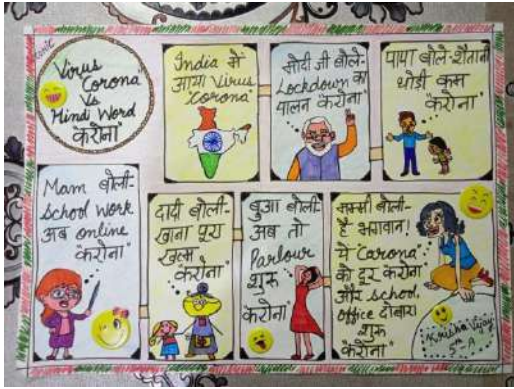 Virus
Corona
Vs
Hind Word
"करोना"
India में
आया Virus
"Corona"
मोदी जी बोले-
Lockdown का
पालन करोना"
पापा बोले-शैतानी
थोड़ी कम
"करोना"
Mam बोली-
School work
अब online
"करोना"
दादी बोली-
खाना पूरा
खत्म
"करोना"
बुआ बोली-
अब तो
Parlour
शुरू
"करोना"
मम्मी बोली-
है भगवान!
ये "Carona"
को दूर करोना
और school,
office दोबारा
शुरू
"करोना"
Krisha Vijay
5th A